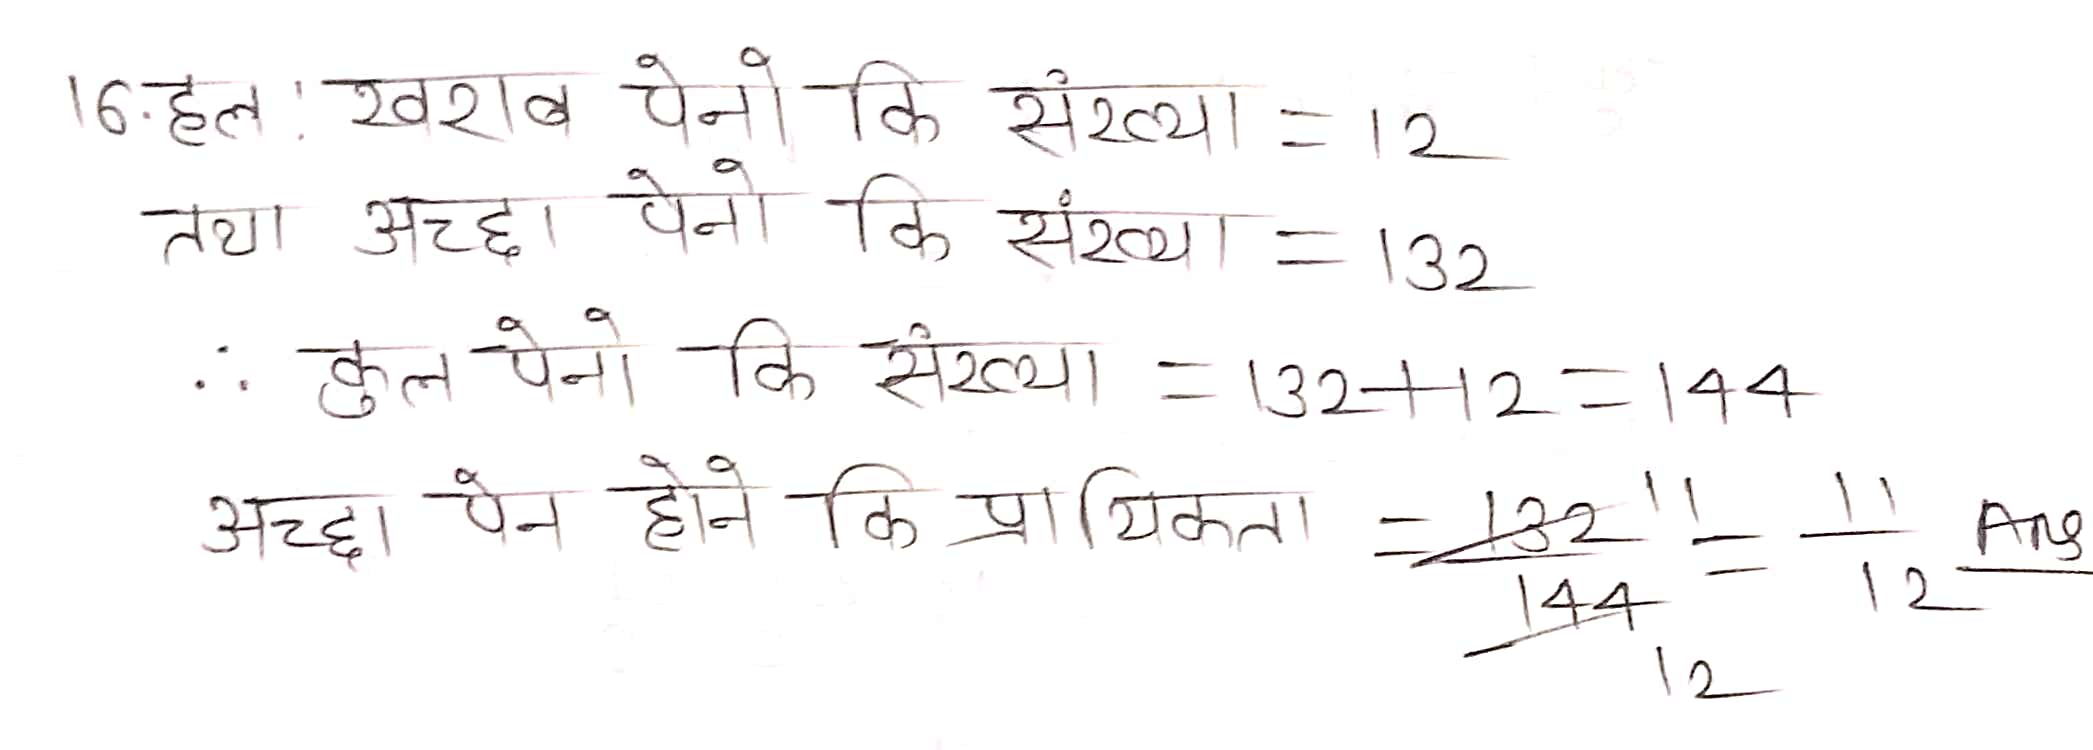 16. हल: खराब पेनो कि संख्या = 12
तथा अच्छा पेनो कि संख्या = 132
∴ कुल पेनो कि संख्या = 132+12 = 144
अच्छा पेन होने कि प्रायिकता = 132/144 11/12 = 11/12 Ans